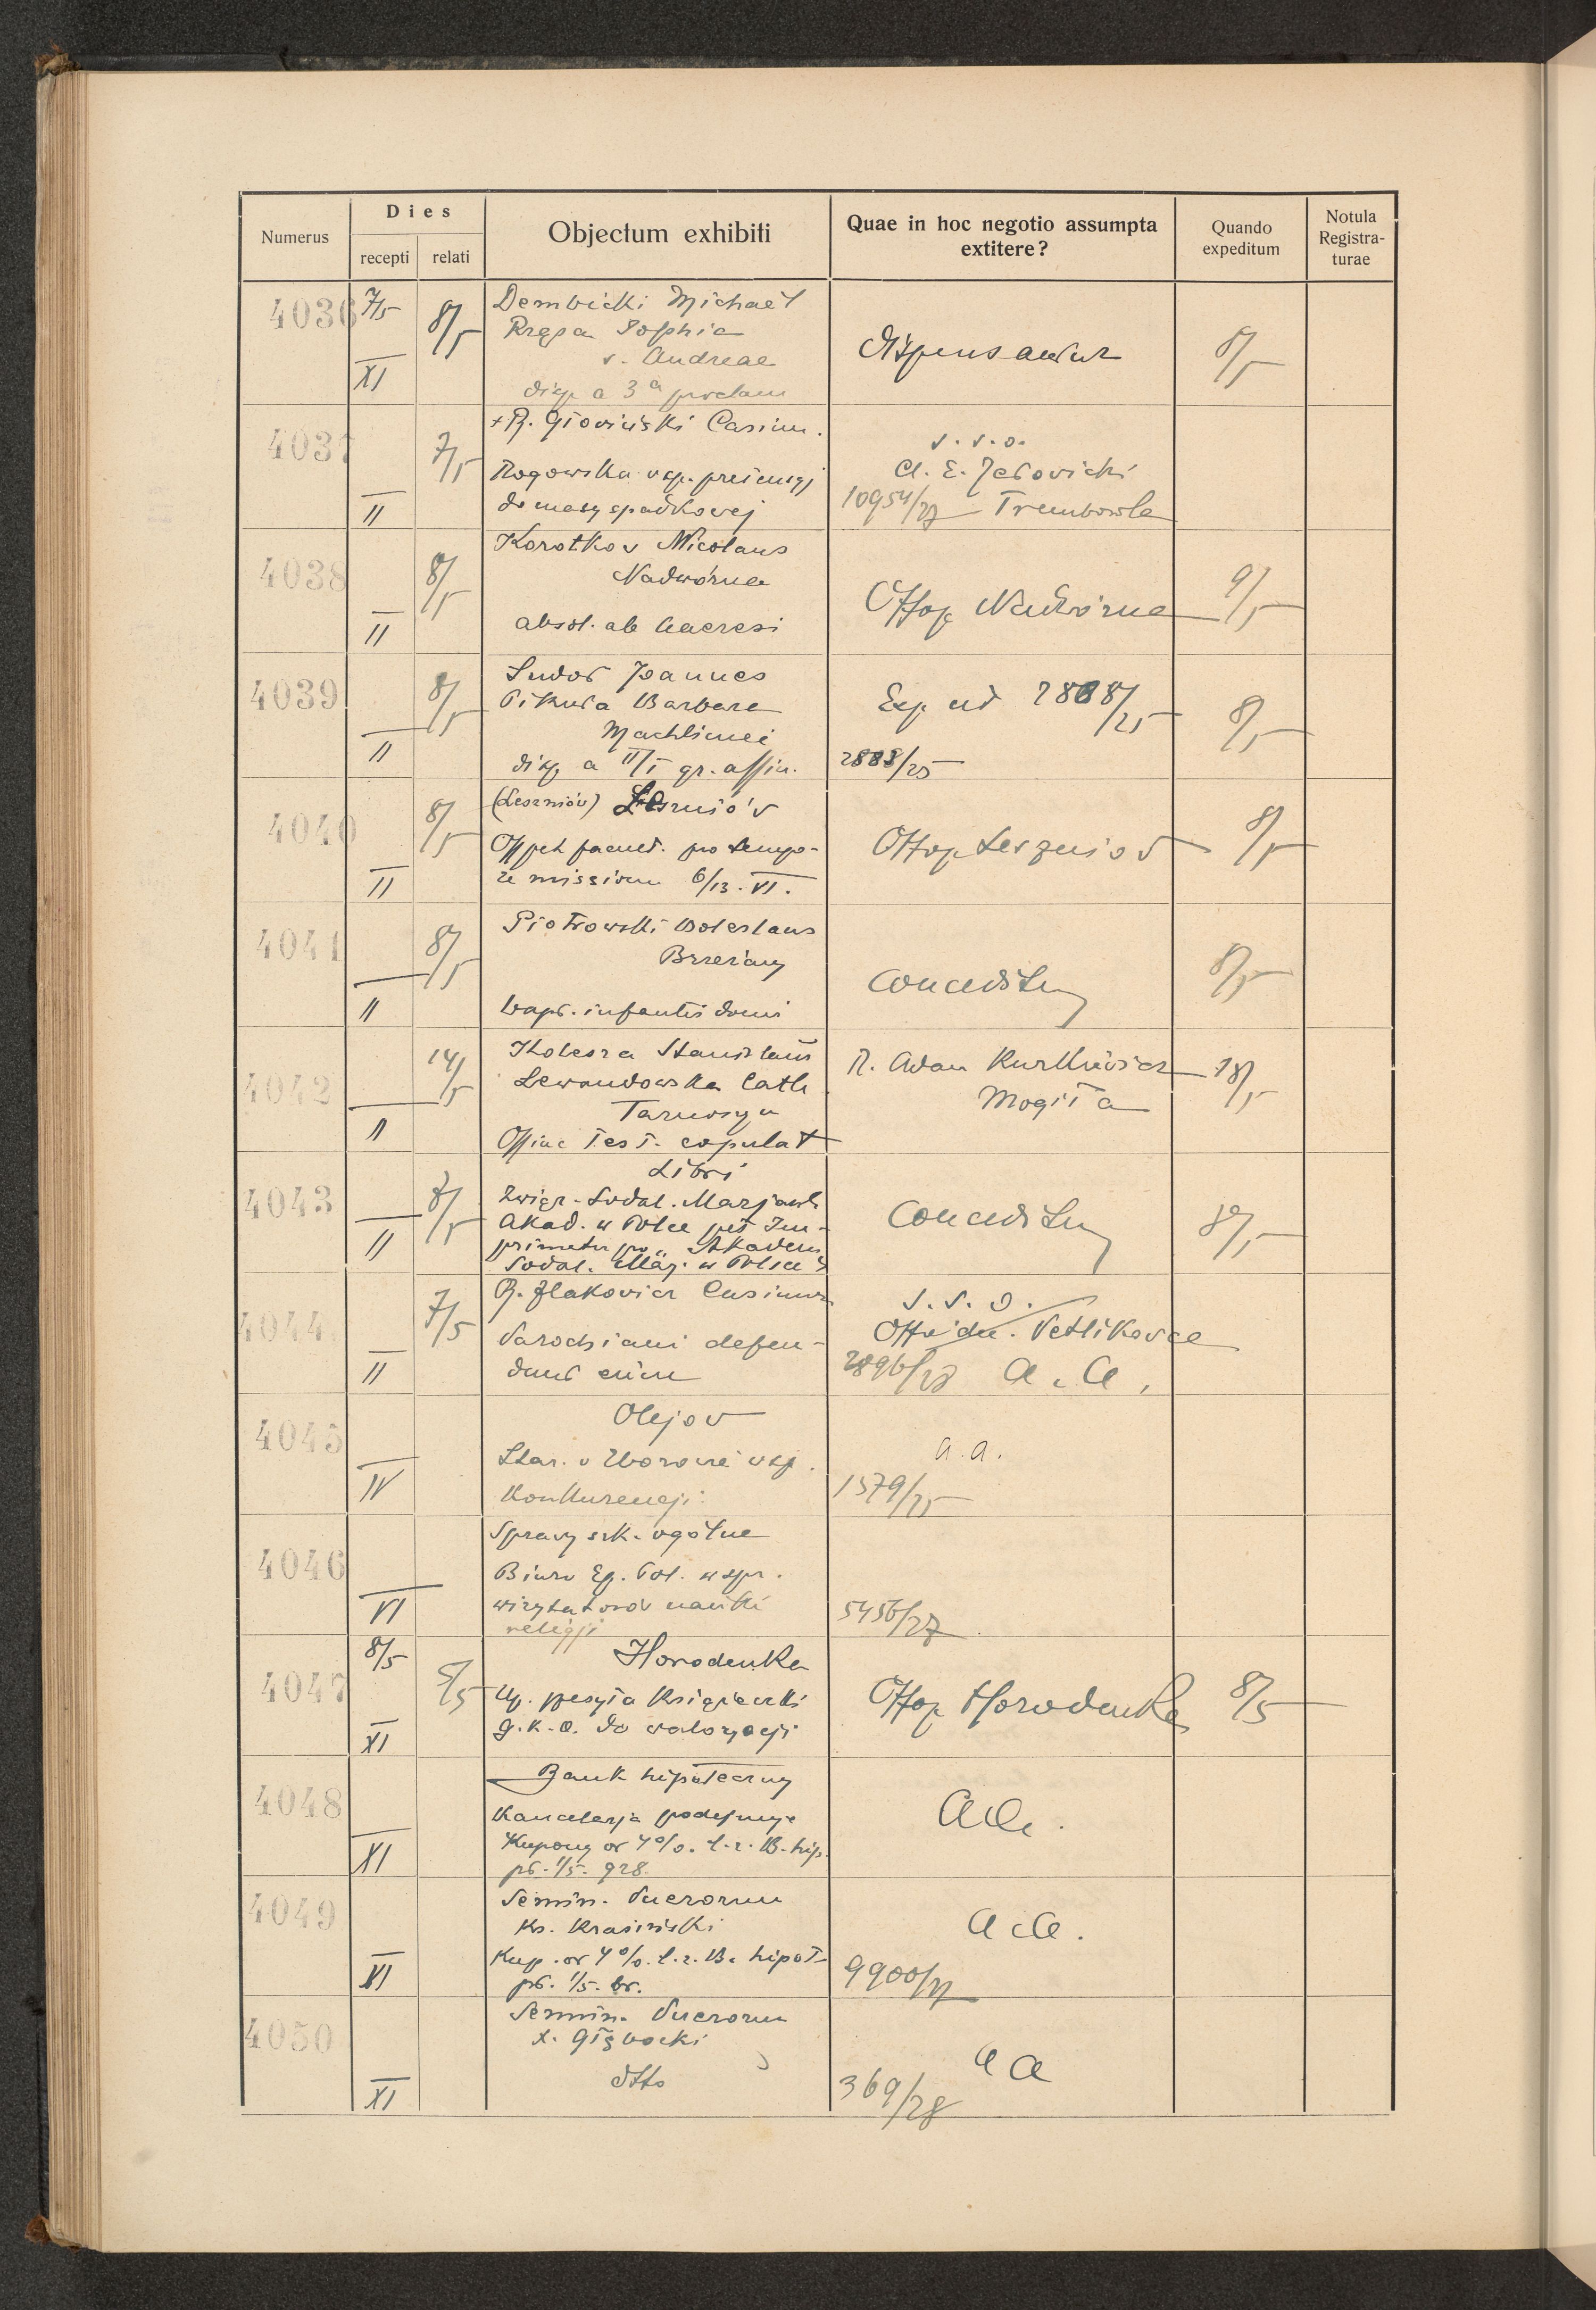 Numerus
Dies
recepti
relati
Objectum exhibiti
Quae in hoc negotio assumpta
extitere?
Quando
expeditum
Notula
Registra-
turae
4036
7/5
XI
8/5
Dembicki Michael
Krępa Sophia
s. Andreae
disp. a 3a proclam
dispensantur
8/5
4037
II
7/5
+ R. Głowiński Casim.
Rogowska wsp. pretensyj
do masy spadkowej
v. s. o.
10954/27 Trembowla
4038
II
8/5
Korotkow Nicolaus
Nadwórna
absol. ab haeresi
Offop Nadwórna
9/5
4039
II
8/5
Sudoł Joannes
Barbara
Machliniec
disp. a II/I gr. affin.
Exp ad 2888/25
2888/25
8/5
4040
II
8/5
(Leszniów) Leszniów
Offpet facult. pro tempo-
re missionu 6/13. VI.
Offop Leszniov
8/5
4041
II
8/5
Piotrowski Boleslaus
Brzeżany
bapt. infantis domi
Conceditur
8/5
4042
II
14/5
Stanislaus
Lewandowska Cath
Tarnoszyn
Test. copulat
R. Adam Kurkiewicz
Mogiła
18/5
4043
II
8/5
Libri
Związ. Sodal. Marjańsk
Akad. w Polsce pet Im-
primatur pro „Akadem
Sodal. Marj. w Polsce"
Conceditur
8/5
4044
II
7/5
R. Casimir
Parochiani defen-
dunt eum
Petlikowce
2896/27 a. a.
4045
IV
Olejow
Star. w Zborowie wsp.
Konkurencji
a. a.
1579/25
4046
VI
Sprawy szk. ogólne
Biuro Ep. Pol. w spr.
wizytatorów nauki
religji
5456/27
4047
8/5
XI
5/5
Horodenka
Up. przesyła książeczki
g. k. o. do waloryzacji
Offop Horodenka
8/5
4048
XI
Bank hipoteczny
Kancelarja podejmuje
Kupony od 4%. l. z. B. hip.
pł. 1/5. 928.
a a.
4049
XI
Semin. Puerorum
Ks. Krasiński
Kup. od 4%. l. z. B. hipot
pł. 1/5. br.
a a.
9900/27
4050
XI
Semin. Puerorum
x. Głębocki
dtto
a a
369/28